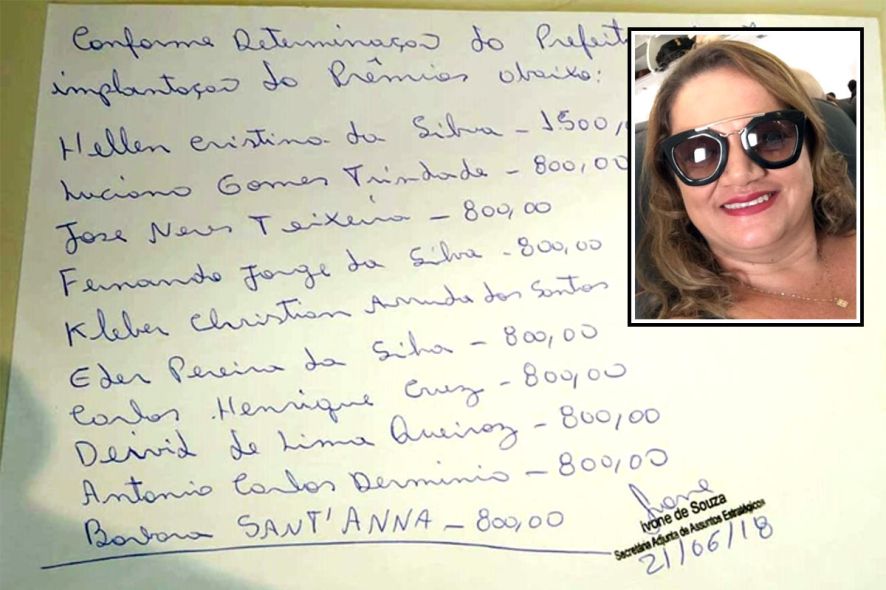 Conforme Determinação do Prefeito
implantação do Prêmios abaixo:
Hellen Cristina da Silva - 1500,
Luciano Gomes Trindade - 800,00
Jose Neres Teixeira - 800,00
Fernando Jorge da Silva - 800,00
Kleber Christian Arruda dos Santos
Eder Pereira da Silva - 800,00
Carlos Henrique Cruz - 800,00
Deivid de Lima Queiroz - 800,00
Antonio Carlos Derminio - 800,00
Barbara SANT'ANNA - 800,00
Ivone
Ivone de Souza
Secretária Adjunta de Assuntos Estratégicos
21/06/18